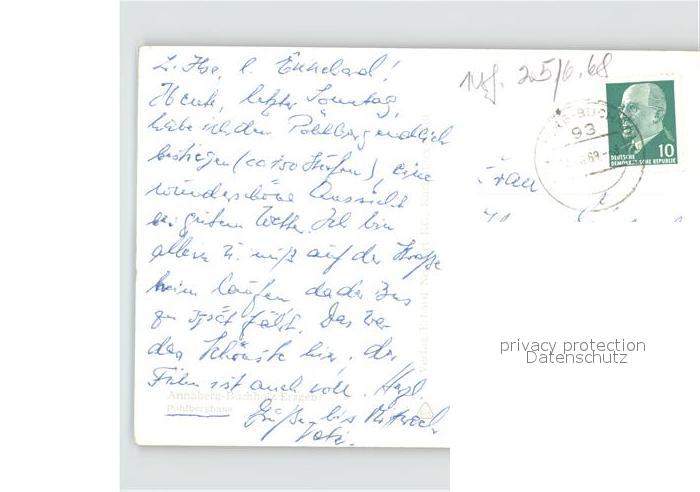 L. Ilse, l. Ekkehard!
Heute, letzter Sonntag,
habe ich den Pöhlberg endlich
bestiegen (ca 150 Stufen), eine
wunderschöne Aussicht
bei gutem Wetter. Ich bin
allein u. muß auf der Straße
heim laufen da der Bus
zu spät fährt. Das war
das Schönste hier, der
Film ist auch voll. Herzl.
Grüße – bis Mittwoch
Annaberg-Buchholz Erzgeb.
Pöhlberghaus
25/6.68
93
DEUTSCHE
DEMOKRATISCHE REPUBLIK
10
Frau
privacy protection
Datenschutz